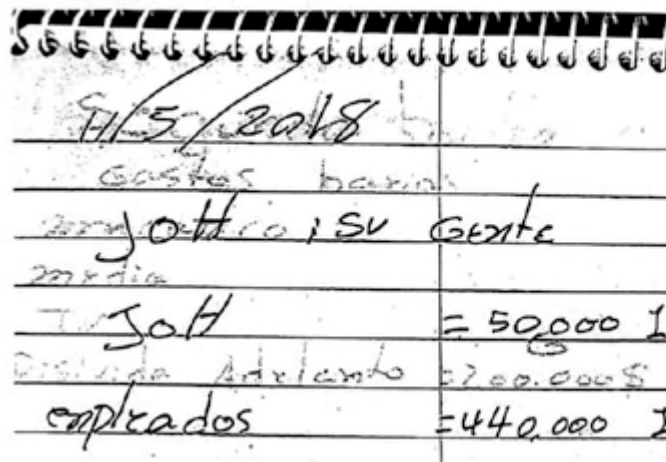 11/5/2018
Gastos
JOH i SU Gente
media
JOH = 50,000
Adelanto = 200.000$
enpleados = 440,000